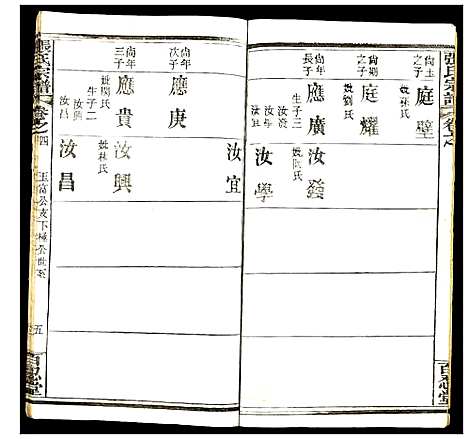 張氏宗譜
百忍堂
尚玉之子
庭璧
尚期之子
庭耀
妣劉氏
尚年長子
應廣
生子三
汝發
汝學
汝宜
汝發
妣阮氏
汝學
汝宜
尚年次子
應庚
尚年三子
應貴
妣周氏
生子二
汝興
汝昌
汝興
妣林氏
汝昌
張氏宗譜
卷之四
玉富公支下極公世系
五
百忍堂